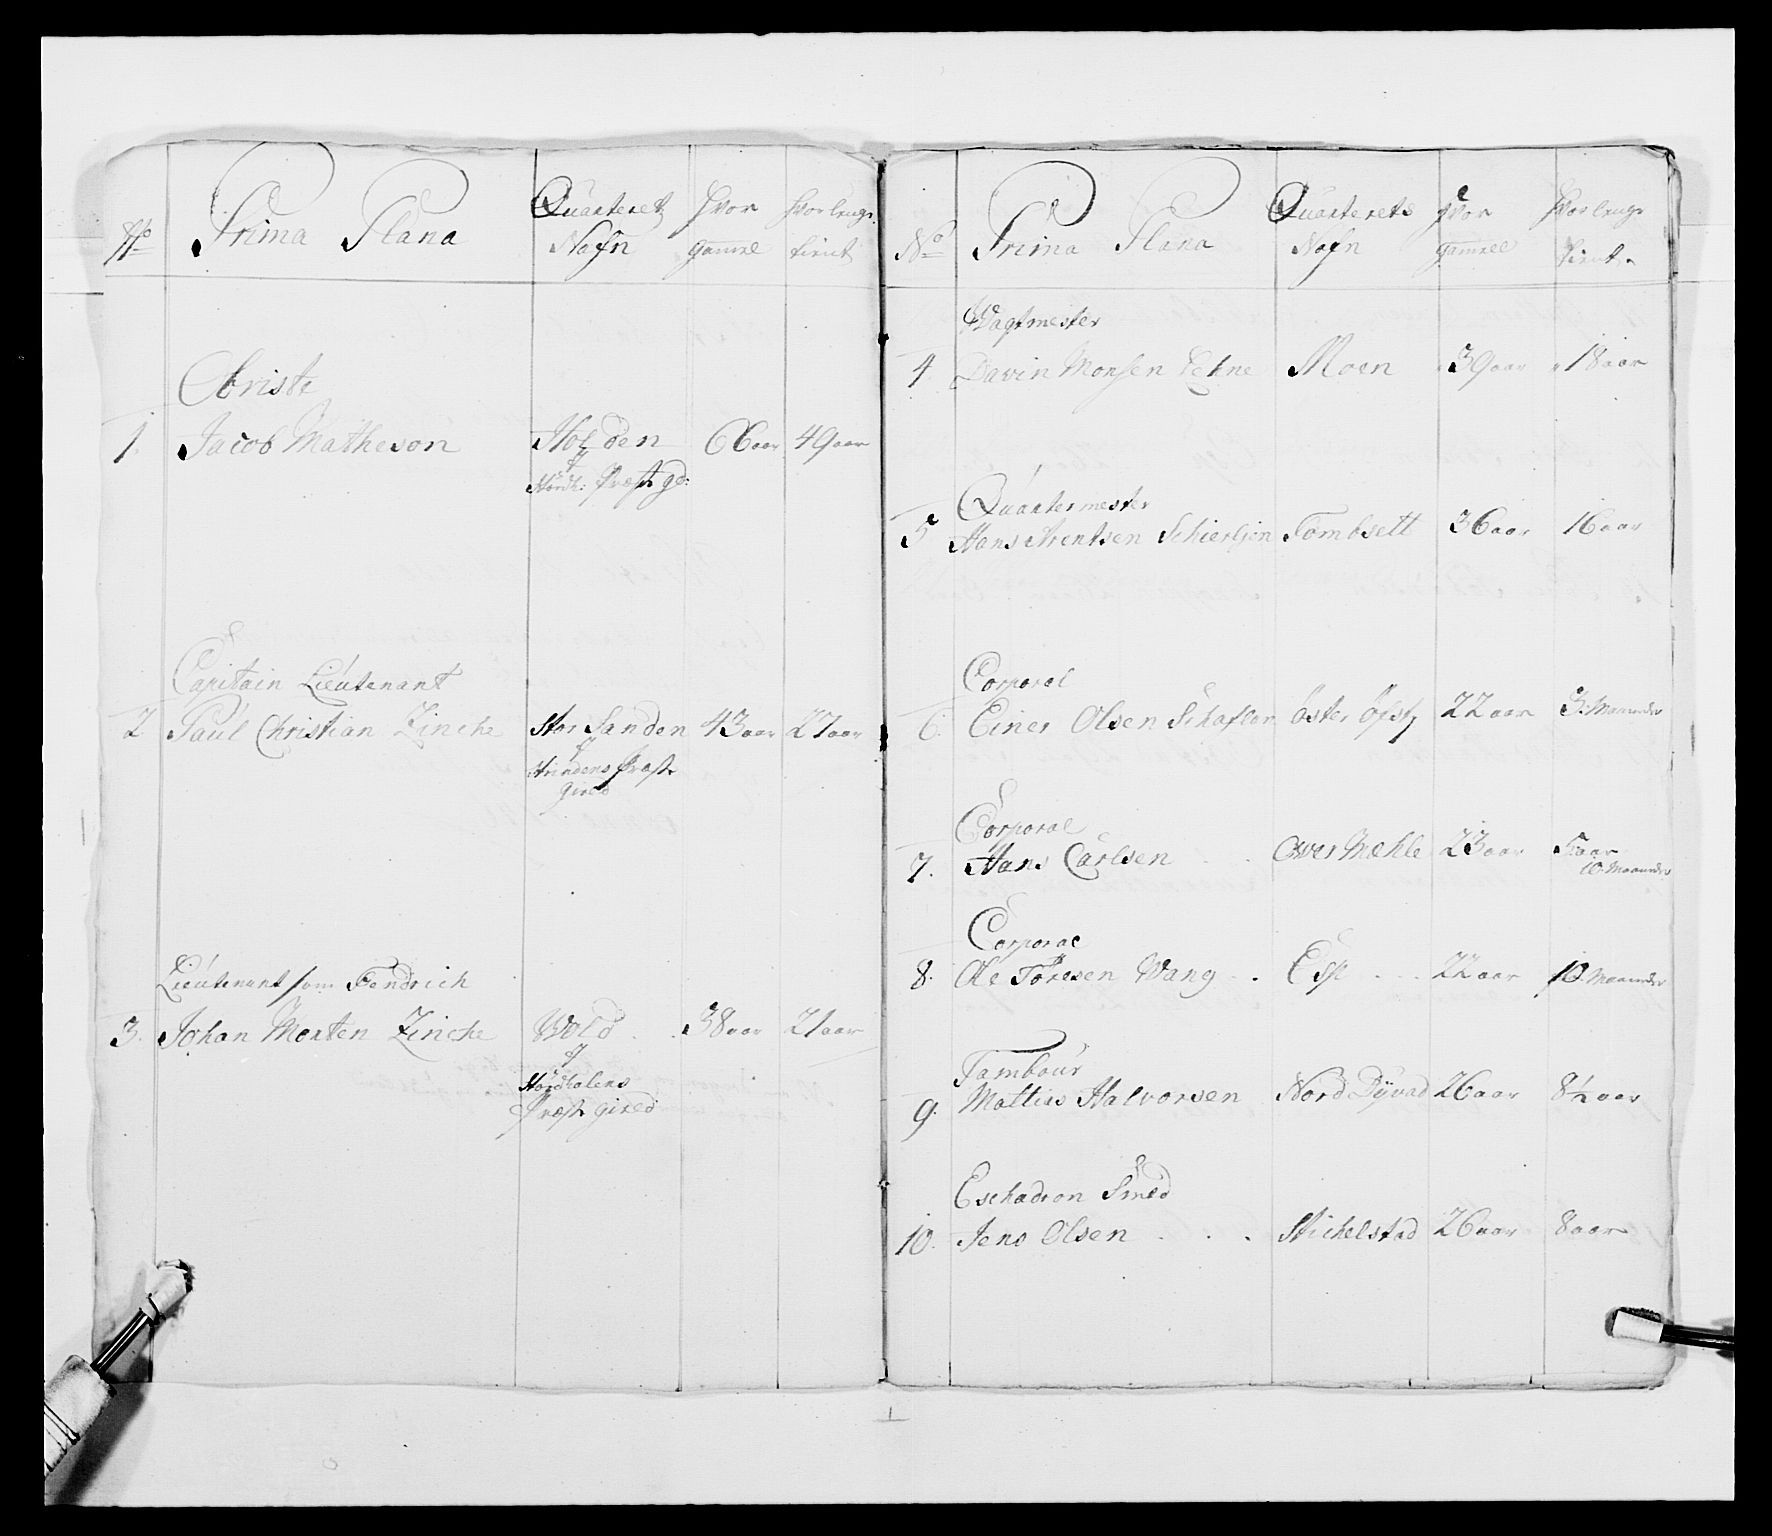 No
Prima Plana
Quarteretz Nafn
Hvor gammel
Hvor lenge tient
Obriste
1. Jacob Matheson Holden 66 aar 49 aar
Præste gd:
Capitain Lieutenant
2 Paul Christian Zincke Stor Sanden 43 aar 27 aar
Strindens Præste
gield
Lieutenant som Fendrich
3. Johan Morten Zincke Wold . . 38 aar 21 aar
Præste gield
No
Prima Plana
Quarterets Nafn
Hvor gammel
Hvor lenge tient
Wagtmester
4. Monsen Moen 39 aar 18 aar
Quartermester
5 Hans Arentsen Tombsett 36 aar 16 aar
Corporal
6. Einer Olsen Schaflan Öster 22 aar 3: Maaneder
Corporal
7. Hans Carlsen . . Over Mæhle 23 aar 5 aar
10. Maaneder
Corporal
8. Ole Toresen Wang . . Esp . . . 22 aar 10 Maaneder
Tambour
9. Mattias Halvorsen Nord Dyvad 26 aar 8½ aar
Eschadron Smed
10. Jens Olsen . . . Stichelstad 26 aar 8 aar